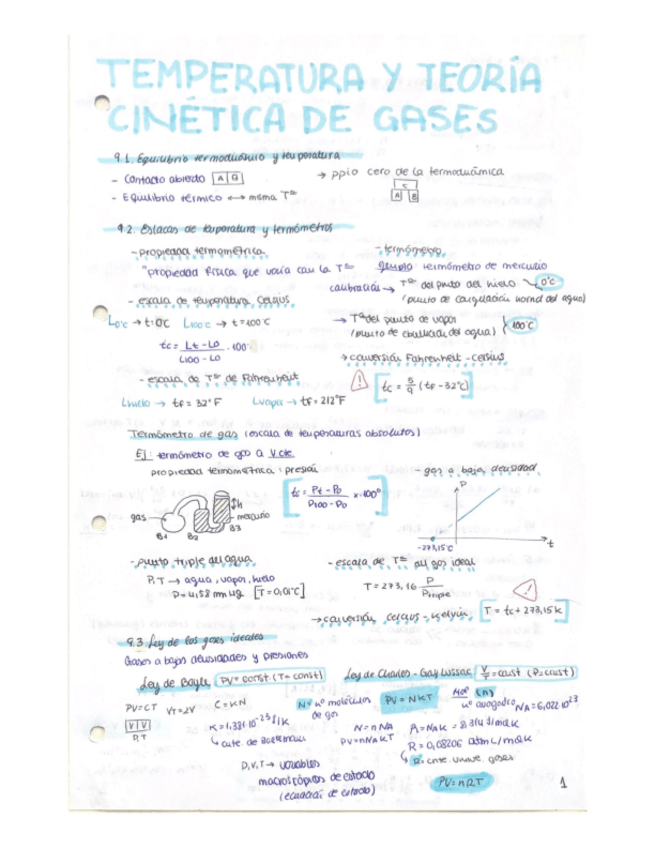 TEMPERATURA Y TEORÍA
CINÉTICA DE GASES
9.1. Equilibrio termodinámico y temperatura
- Contacto abierto A G
→ ppio cero de la termodinámica
- Equilibrio térmico ↔ misma Tª
C
A B
9.2. Escalas de temperatura y termómetros
- propiedad termométrica
"propiedad física que varía con la Tª
- termómetro
Ejemplo termómetro de mercurio
calibración → Tª del punto del hielo 0°C
(punto de congelación normal del agua)
→ Tª del punto de vapor
(punto de ebullición del agua) 100°C
- escala de temperatura Celsius
L0°C → t: 0C L100°C → t = 100°C
tc = Lt - L0 / L100 - L0 · 100°
→ conversión Fahrenheit - Celsius
tc = 5/9 (tF - 32°C)
- escala de Tª de Fahrenheit
Lhielo → tF = 32°F Lvapor → tF = 212°F
Termómetro de gas (escala de temperaturas absolutas)
Ej: termómetro de gas a V cte
propiedad termométrica: presión
tc = Pt - P0 / P100 - P0 x 100°
gas
h
mercurio
B1 B2 B3
- gas a baja densidad
P
-273,15°C
t
- punto triple del agua
P, T → agua, vapor, hielo
P = 4,58 mm Hg [T = 0,01°C]
- escala de Tª del gas ideal
T = 273,16 P / Ptriple
→ conversión Celsius - Kelvin T = tc + 273,15 K
9.3 Ley de los gases ideales
Gases a bajas densidades y presiones
Ley de Boyle PV = const (T = const)
Ley de Charles - Gay Lussac V/T = const (P = const)
PV = CT VT = 2V C = KN
V V
P, T
K = 1,381·10⁻²³ J/K
cnte de Boltzmann
N = nº moléculas
de gas
PV = NKT
Mol (n)
nº avogadro NA = 6,022·10²³
N = nNA
PV = nNAKT
R = NAK = 8,314 J/molK
R = 0,08206 atm L/molK
R = cnte. univ. gases
P, V, T → variables
macroscópicas de estado
(ecuación de estado)
PV = nRT
1